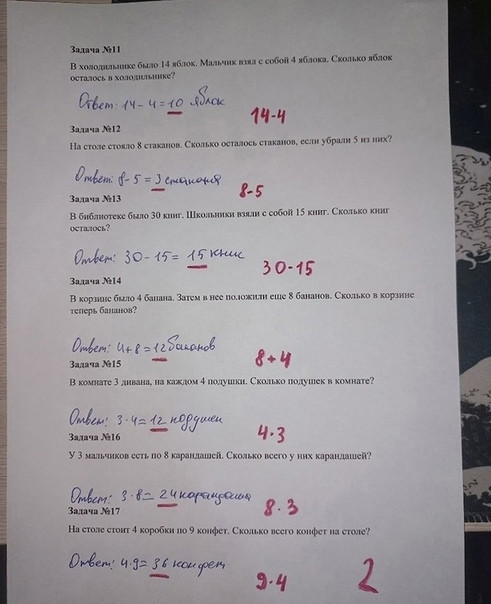 Задача №11
В холодильнике было 14 яблок. Мальчик взял с собой 4 яблока. Сколько яблок
осталось в холодильнике?
Ответ: 14-4=10 яблок
14-4
Задача №12
На столе стояло 8 стаканов. Сколько осталось стаканов, если убрали 5 из них?
Ответ: 8-5=3 стакана
8-5
Задача №13
В библиотеке было 30 книг. Школьники взяли с собой 15 книг. Сколько книг
осталось?
Ответ: 30-15=15 книг
30-15
Задача №14
В корзине было 4 банана. Затем в нее положили еще 8 бананов. Сколько в корзине
теперь бананов?
Ответ: 4+8=12 бананов
8+4
Задача №15
В комнате 3 дивана, на каждом 4 подушки. Сколько подушек в комнате?
Ответ: 3·4=12 подушек
4·3
Задача №16
У 3 мальчиков есть по 8 карандашей. Сколько всего у них карандашей?
Ответ: 3·8=24 карандаша
8·3
Задача №17
На столе стоит 4 коробки по 9 конфет. Сколько всего конфет на столе?
Ответ: 4·9=36 конфет
9·4
2